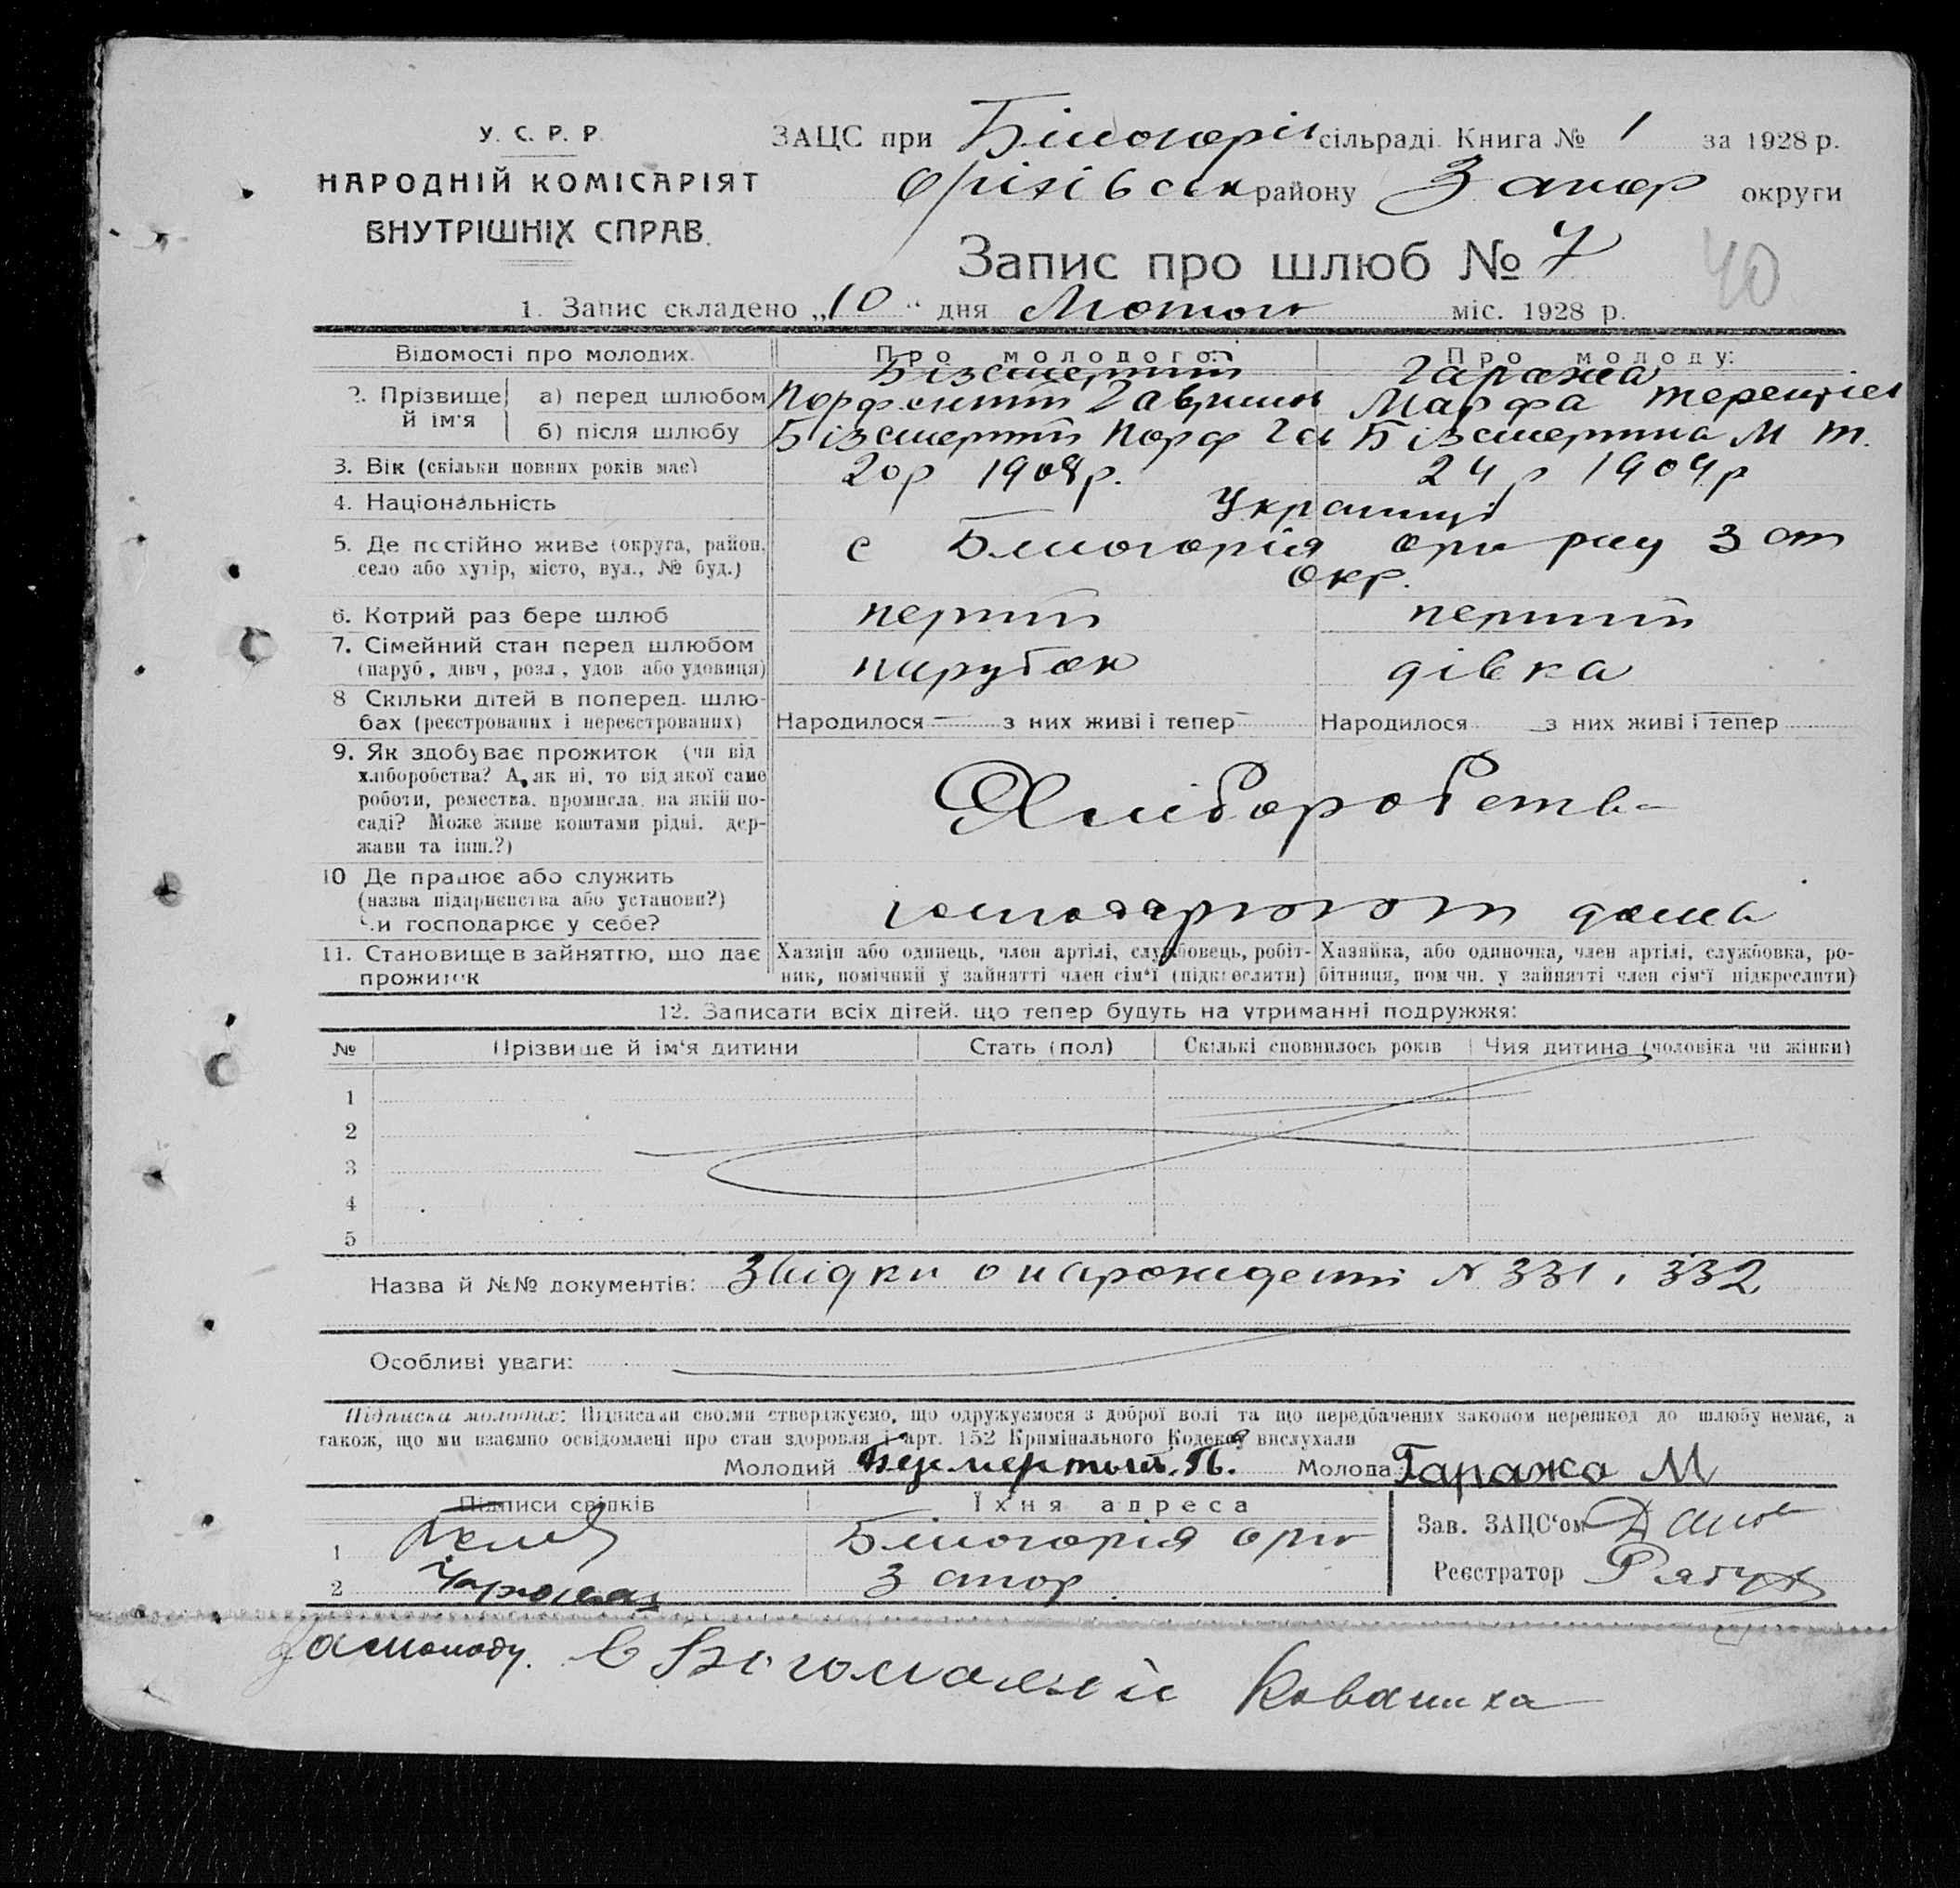 У. С. Р. Р.
НАРОДНІЙ КОМІСАРІЯТ
ВНУТРІШНІХ СПРАВ.
ЗАЦС при Білогоріv сільраді Книга № 1 за 1928 р.
Оріхівськ району Запор округи
Запис про шлюб № 7
40
1. Запис складено „10“ дня Лютого міс. 1928 р.
Відомості про молодих. Про молодого: Про молоду:
Безсмертний Гаража
2. Прізвище й ім'я а) перед шлюбом Порфентій Гаврилов Марфа Терентіев
б) після шлюбу Бізсмертий Порф Га Бізсмертна М Т.
3. Вік (скільки повних років має) 20 р 1908 р. 24 р 1904 р
4. Національність Українці
5. Де постійно живе (округа, район, село або хутір, місто, вул., № буд.) с Білогорія Орі рну Зап
Окр.
6. Котрий раз бере шлюб перший перший
7. Сімейний стан перед шлюбом (паруб, дівч, розл, удов або удовиця) парубок дівка
8 Скільки дітей в поперед. шлюбах (реєстрованих і нереєстрованих) Народилося — з них живі і тепер — Народилося — з них живі і тепер —
9. Як здобуває прожиток (чи від хліборобства? А, як ні, то від якої саме роботи, ремества, промисла, на якій посаді? Може живе коштами рідні, держави та інш.?) Хліборобств
10 Де працює або служить (назва підприємства або установи?) Чи господарює у себе? господарюют дома
11. Становище в зайняттю, що дає прожиток Хазяїн або одинець, член артілі, службовець, робітник, помічний у зайнятті член сім'ї (підкреслити) Хазяйка, або одиночка, член артілі, службовка, робітниця, помічн. у зайнятті член сім'ї підкреслити)
12. Записати всіх дітей, що тепер будуть на утриманні подружжя:
№ Прізвище й ім'я дитини Стать (пол) Скількі сповнилось років Чия дитина (чоловіка чи жінки)
1
2
3
4
5
Назва й №№ документів: Звідки о нарождені N 331 і 332
Особливі уваги:
Підписка молодих: Підписами своїми стверджуємо, що одружуємося з доброї волі та що передбачених законом перешкод до шлюбу немає, а
також, що ми взаємно освідомлені про стан здоровля і арт. 152 Кримінального Кодексу вислухали
Молодий Безсмертый. П. Молода Гаража М
Підписи свідків Їхня адреса
1 Білогорія Оріх Зав. ЗАЦС'ом
2 Запор. Реєстратор Рябух